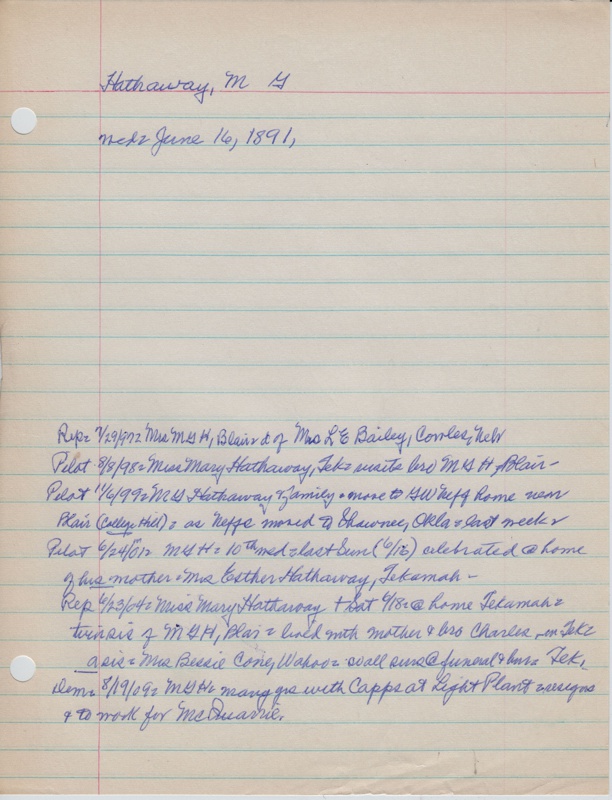 Hathaway, M G
wed = June 16, 1891,
Rep = 7/29/97 = Mrs M G H, Blair = d of Mrs L E Bailey, Cowles, Nebr
Pilot 8/8/98 = Miss Mary Hathaway, Tek = visits bro M G H, Blair -
Pilot 11/6/99 = M G Hathaway & family = move to GW Neff home near
Blair (College Hill) = as Neffs moved to Shawnee, Okla = last week =
Pilot 6/24/01 = M G H = 10th wed = last Sun (6/16) celebrated @ home
of his mother = Mrs Esther Hathaway, Tekamah -
Rep 6/23/04 = Miss Mary Hathaway + Sat 6/18 = @ home Tekamah =
sis of M G H, Blair = lived with mother & bro Charles in Tek =
a sis = Mrs Bessie Cone, Wahoo = all surv @ funeral & bur = Tek,
Dem = 8/19/09 = M G H = many yrs with Capps at Light Plant = resigns
& to work for McQuarrie.